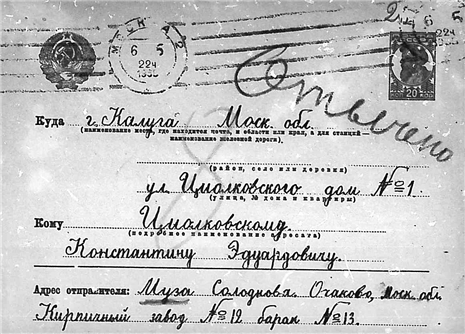 МОСКВА
6 5
22ч
1935
6 5
22ч
20
Отвечено
Куда г. Калуга Моск. обл.
(наименование места, где находится почта, и области или края, а для станций—
наименование железной дороги).
(район, село или деревня)
ул. Циолковского дом №1.
(улица, № дома и квартиры)
Кому Циолковскому.
(подробное наименование адресата)
Константину Эдуардовичу.
Адрес отправителя: Муза Солоднова. Очаково, Моск. обл.
Кирпичный завод №12 барак №13.